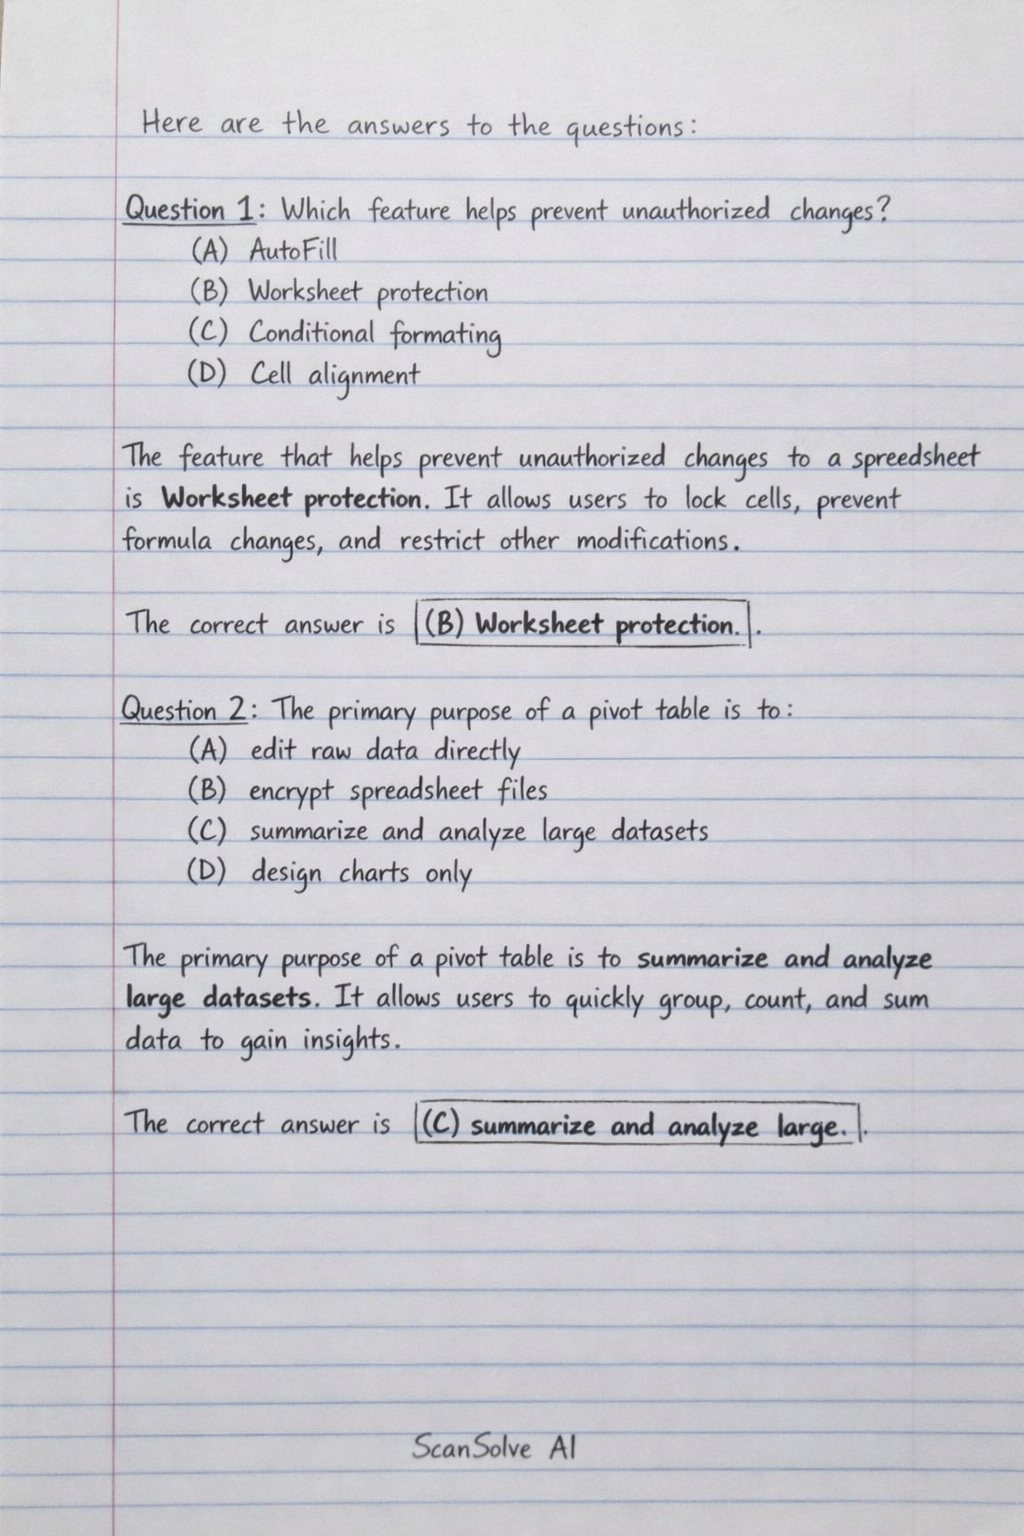 Here are the answers to the questions:
Question 1: Which feature helps prevent unauthorized changes?
(A) AutoFill
(B) Worksheet protection
(C) Conditional formating
(D) Cell alignment
The feature that helps prevent unauthorized changes to a spreedsheet
is Worksheet protection. It allows users to lock cells, prevent
formula changes, and restrict other modifications.
The correct answer is (B) Worksheet protection. .
Question 2: The primary purpose of a pivot table is to:
(A) edit raw data directly
(B) encrypt spreadsheet files
(C) summarize and analyze large datasets
(D) design charts only
The primary purpose of a pivot table is to summarize and analyze
large datasets. It allows users to quickly group, count, and sum
data to gain insights.
The correct answer is (C) summarize and analyze large. .
ScanSolve AI